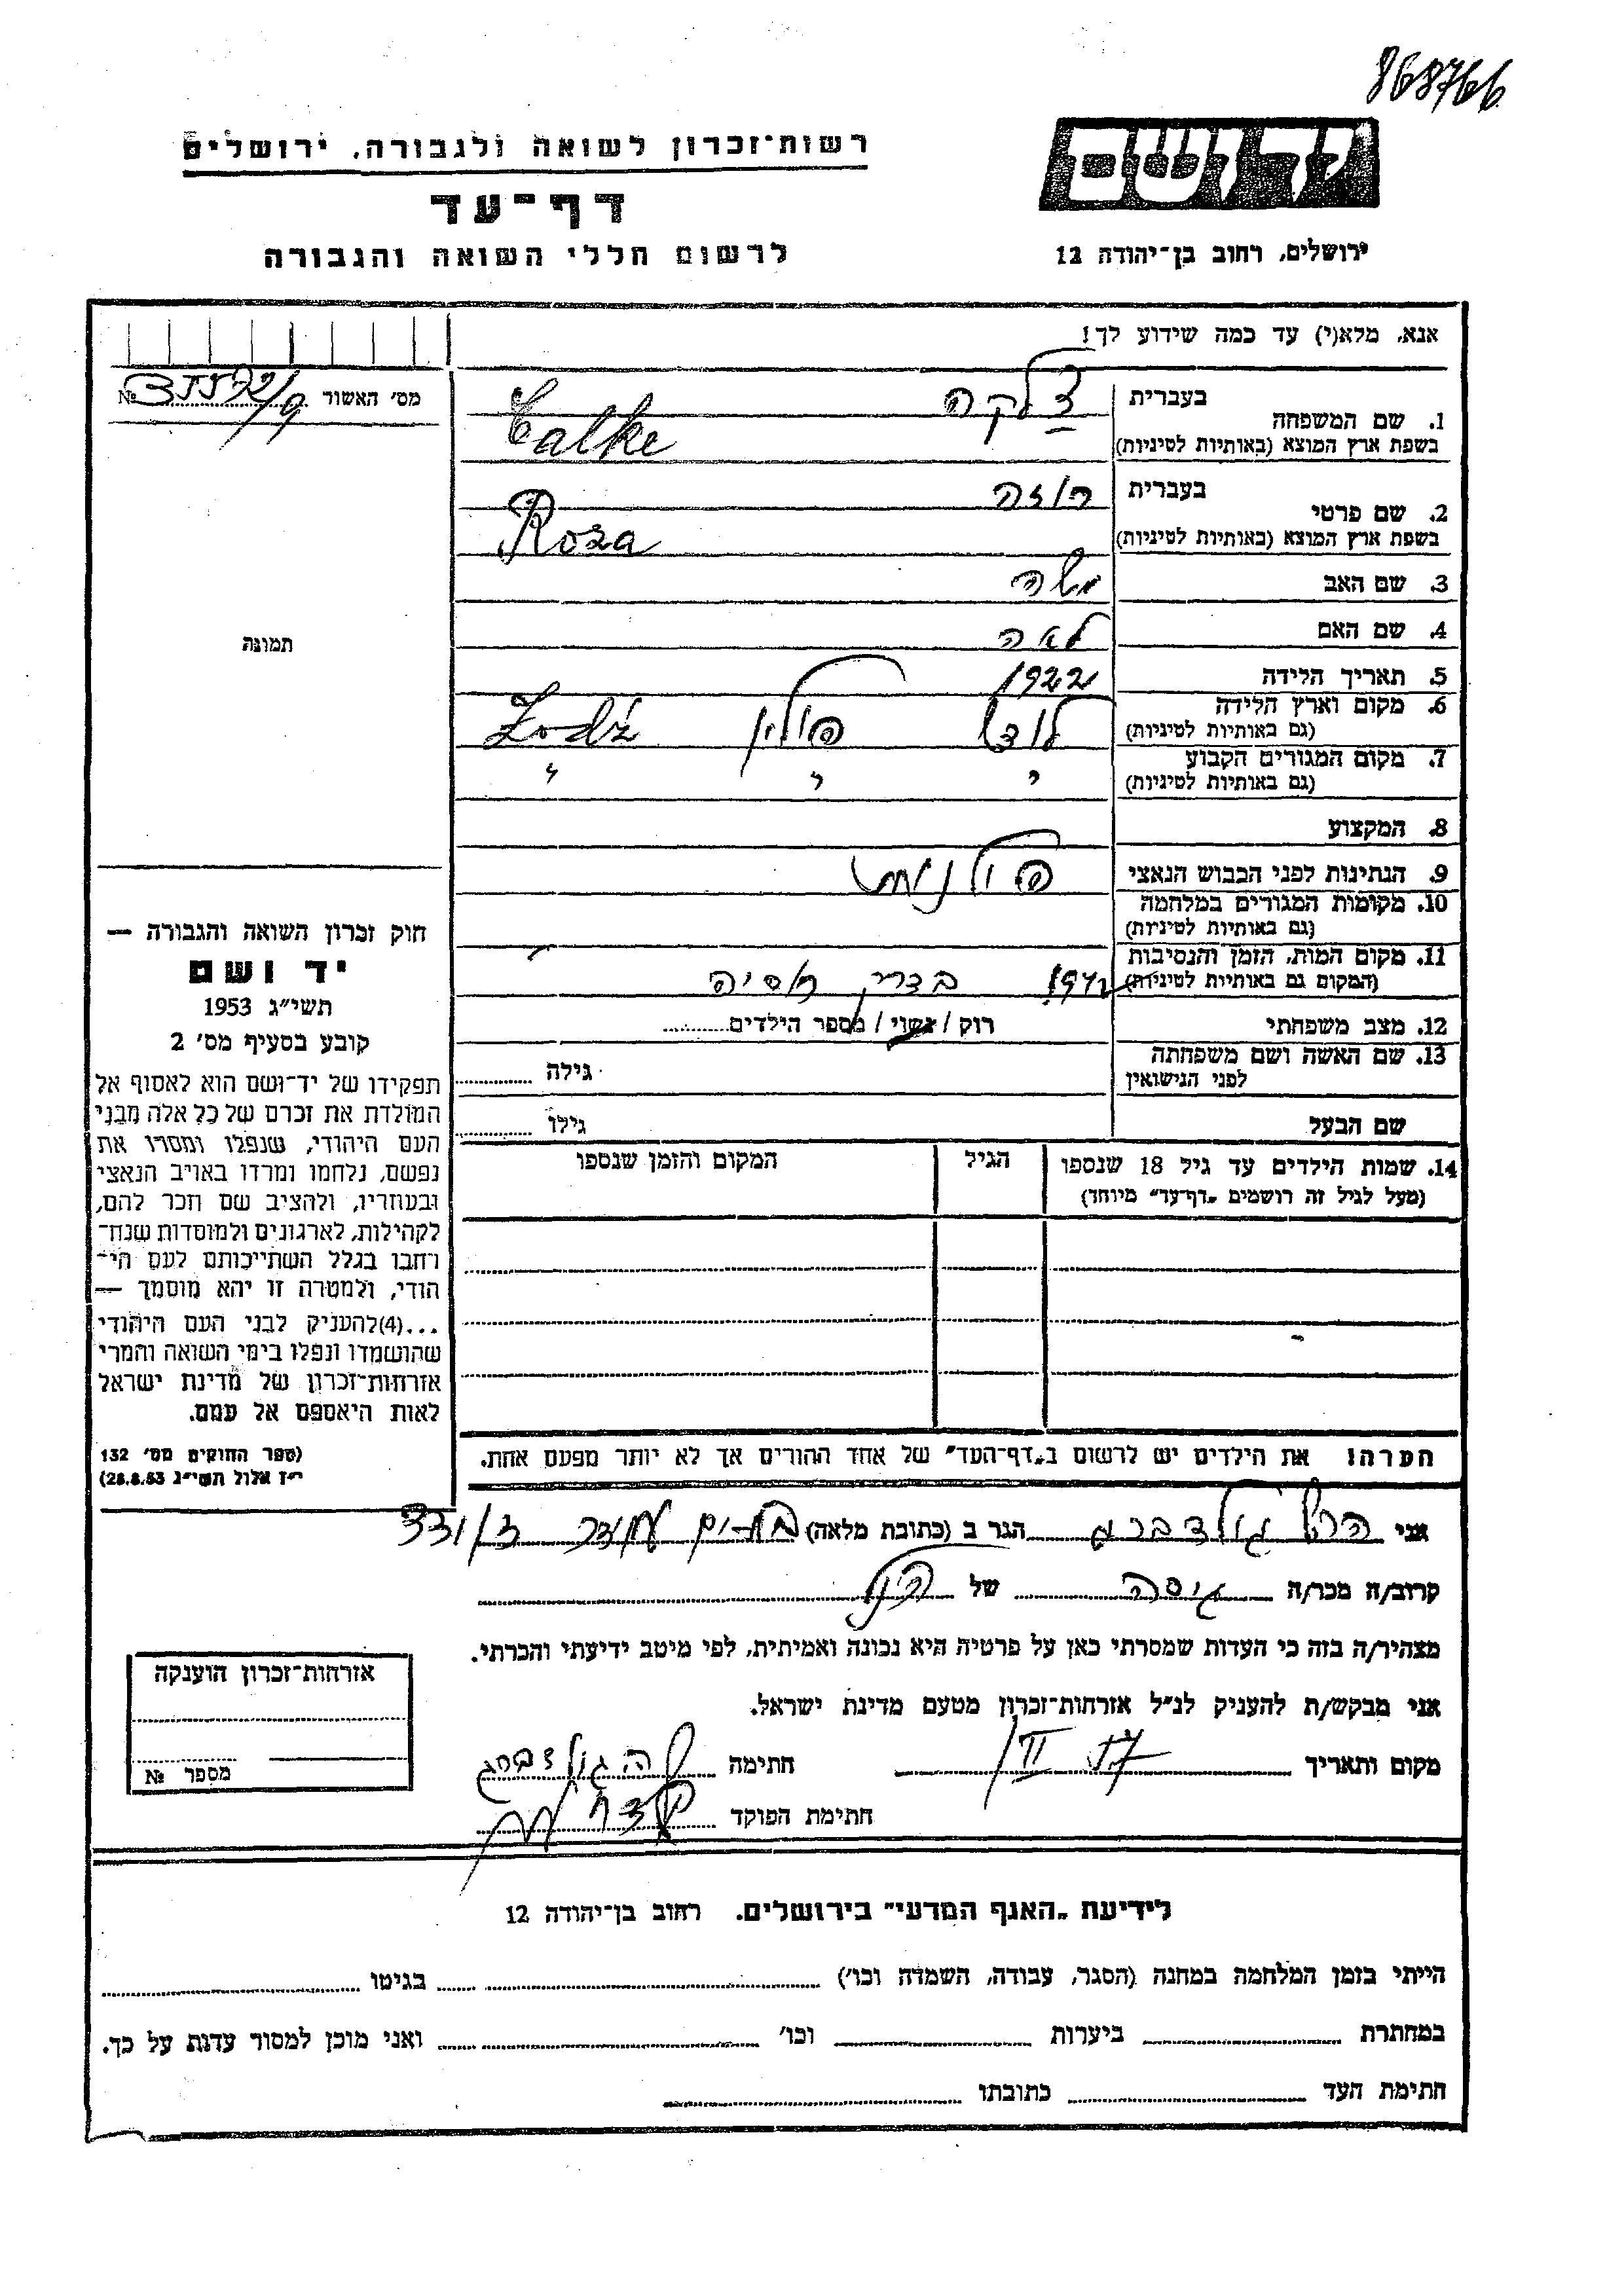 868766
ידושם
רשות־זכרון לשואה ולגבורה, ירושלים
דף־עד
לרשום חללי השואה והגבורה
ירושלים, רחוב בן־יהודה 12
אנא, מלא(י) עד כמה שידוע לך!
מס׳ האשור №
1. שם המשפחה
בעברית צלקה
בשפת ארץ המוצא (באותיות לטיניות) Calke
2. שם פרטי
בעברית רוזה
בשפת ארץ המוצא (באותיות לטיניות) Roza
3. שם האב משה
4. שם האם לאה
5. תאריך הלידה 1922
6. מקום וארץ הלידה לודז׳ פולין Łodź
(גם באותיות לטיניות)
7. מקום המגורים הקבוע " " "
(גם באותיות לטיניות)
8. המקצוע
9. הנתינות לפני הכבוש הנאצי פולנית
10. מקומות המגורים במלחמה
(גם באותיות לטיניות)
11. מקום המות, הזמן והנסיבות
(המקום גם באותיות לטיניות) בדרך רוסיה
12. מצב משפחתי רוק / נשוי / מספר הילדים
13. שם האשה ושם משפחתה
לפני הנישואין גילה
שם הבעל גילו
14. שמות הילדים עד גיל 18 שנספו
(מעל לגיל זה רושמים „דף־עד״ מיוחד)
הגיל
המקום והזמן שנספו
הערה! את הילדים יש לרשום ב„דף־העד״ של אחד ההורים אך לא יותר מפעם אחת.
תמונה
חוק זכרון השואה והגבורה —
יד ושם
תשי״ג 1953
קובע בסעיף מס׳ 2
תפקידו של יד־ושם הוא לאסוף אל
המולדת את זכרם של כל אלה מבני
העם היהודי, שנפלו ומסרו את
נפשם, נלחמו ומרדו באויב הנאצי
ובעוזריו, ולהציב שם וזכר להם,
לקהילות, לארגונים ולמוסדות שנח־
רחבו בגלל השתייכותם לעם הי־
הודי, ולמטרה זו יהא מוסמך —
...(4)להעניק לבני העם היהודי
שהושמדו ונפלו בימי השואה והמרי
אזרחות־זכרון של מדינת ישראל
לאות היאספם אל עמם.
(ספר החוקים מס׳ 132
י״ז אלול תשי״ג 28.8.53)
אני גולדברג הגר ב (כתובת מלאה) 331/3
קרוב/ה מכר/ה גיסה של
מצהיר/ה בזה כי העדות שמסרתי כאן על פרטיה היא נכונה ואמיתית, לפי מיטב ידיעתי והכרתי.
אני מבקש/ת להעניק לנ״ל אזרחות־זכרון מטעם מדינת ישראל.
מקום ותאריך 17/II חתימה ה גולדברג
חתימת הפוקד
אזרחות־זכרון הוענקה
מספר №
לידיעת „האגף המדעי״ בירושלים. רחוב בן־יהודה 12
הייתי בזמן המלחמה במחנה (הסגר, עבודה, השמדה וכו׳) בגיטו
במחתרת ביערות וכו׳ ואני מוכן למסור עדות על כך.
חתימת העד כתובתו